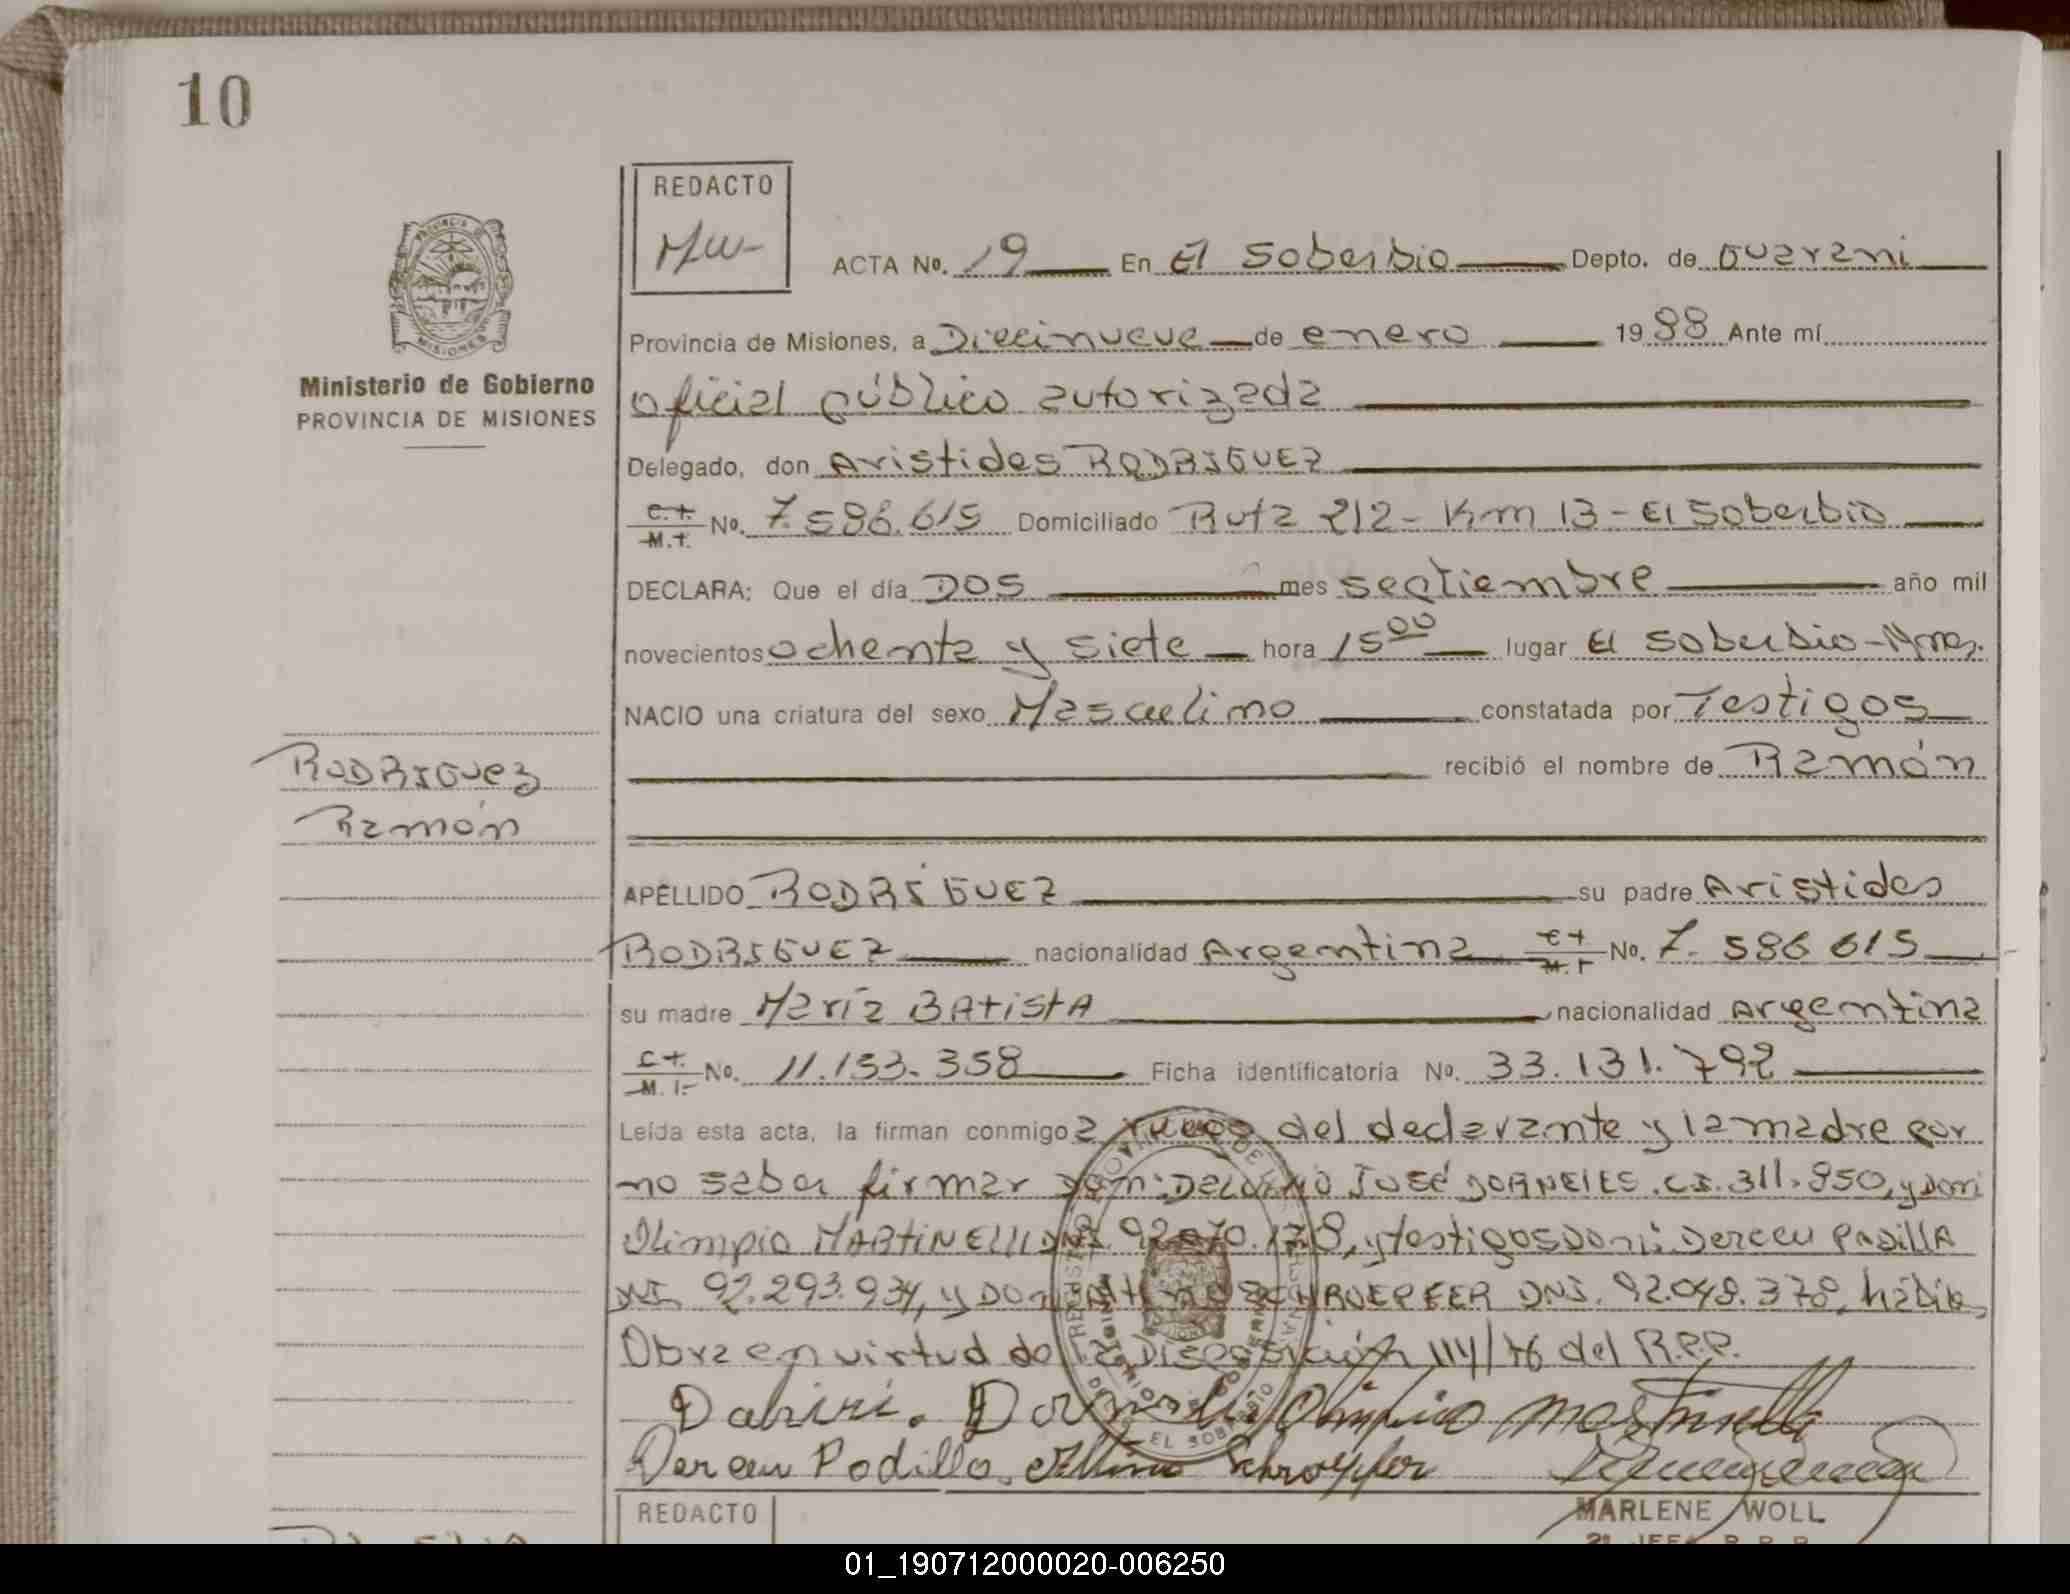 10
REDACTO
ACTA No. 19 En El Soberbio Depto. de Guarani
Provincia de Misiones, a Diecinueve de enero 1988 Ante mí
Oficial público autorizada
Ministerio de Gobierno
PROVINCIA DE MISIONES
Delegado, don Aristides RODRIGUEZ
C.I. M.I. No. 7.586.615 Domiciliado Ruta 212 - Km 13 - El Soberbio
DECLARA: Que el día DOS mes septiembre año mil
novecientos ochenta y siete hora 15 00 lugar El Soberbio - Mnes.
NACIO una criatura del sexo Masculino constatada por Testigos
RODRIGUEZ
recibió el nombre de Ramón
Ramón
APELLIDO RODRÍGUEZ su padre Aristides
RODRIGUEZ nacionalidad Argentina C.I. M.I. No. 7.586.615
su madre María BATISTA nacionalidad Argentina
C.I. M.I. No. 11.153.358 Ficha identificatoria No. 33.131.792
Leída esta acta, la firman conmigo a ruego del declarante y la madre por
no saber firmar Don: José DORNELES. C.I. 311.950, y don:
Olimpio MARTINELLI DNI. 92.070.178, y testigos Don: Derceu PADILLA
DNI. 92.293.934, y Don: SCHROEPFER DNI. 92.048.378, hábiles
Obra en virtud de la Disposición 114/76 del R.P.P.
Olimpio Martinelli
Derceu Padilla Schroepfer
MARLENE WOLL
REDACTO
01_190712000020-006250